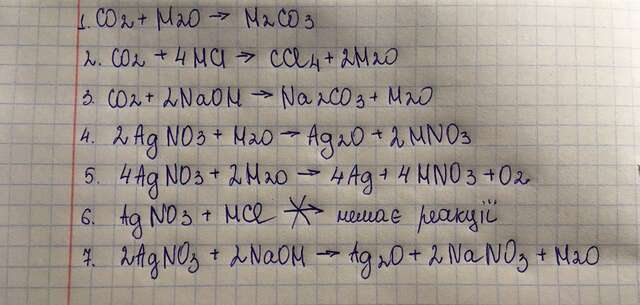 1. CO2 + H2O → H2CO3
2. CO2 + 4HCl → CCl4 + 2H2O
3. CO2 + 2NaOH → Na2CO3 + H2O
4. 2AgNO3 + H2O → Ag2O + 2HNO3
5. 4AgNO3 + 2H2O → 4Ag + 4HNO3 + O2
6. AgNO3 + HCl ↛ немає реакції
7. 2AgNO3 + 2NaOH → Ag2O + 2NaNO3 + H2O